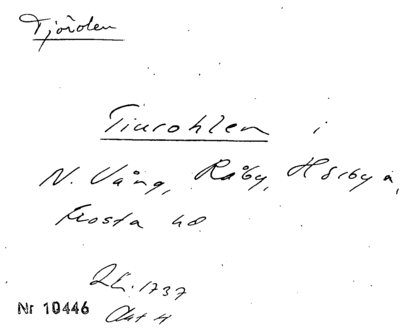 Tjörölen
Tiurohlen i
N. Vång, Råby, Hörby s,
Frosta hd
LL. 1737
Nr 10446 Akt 4